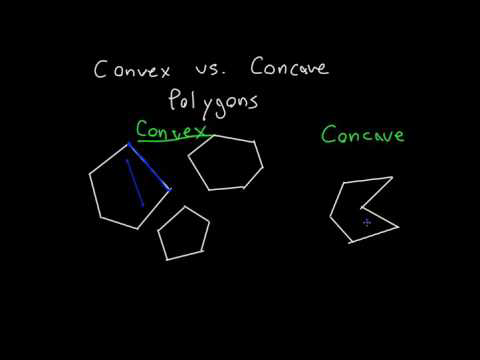 Convex vs. Concave
Polygons
Convex
Concave